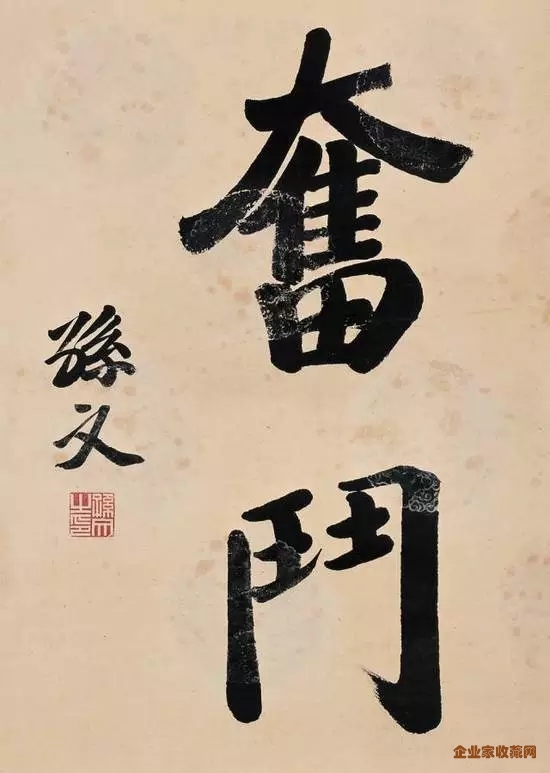 奮
鬥
孫文
孫文之印
企业家收藏网